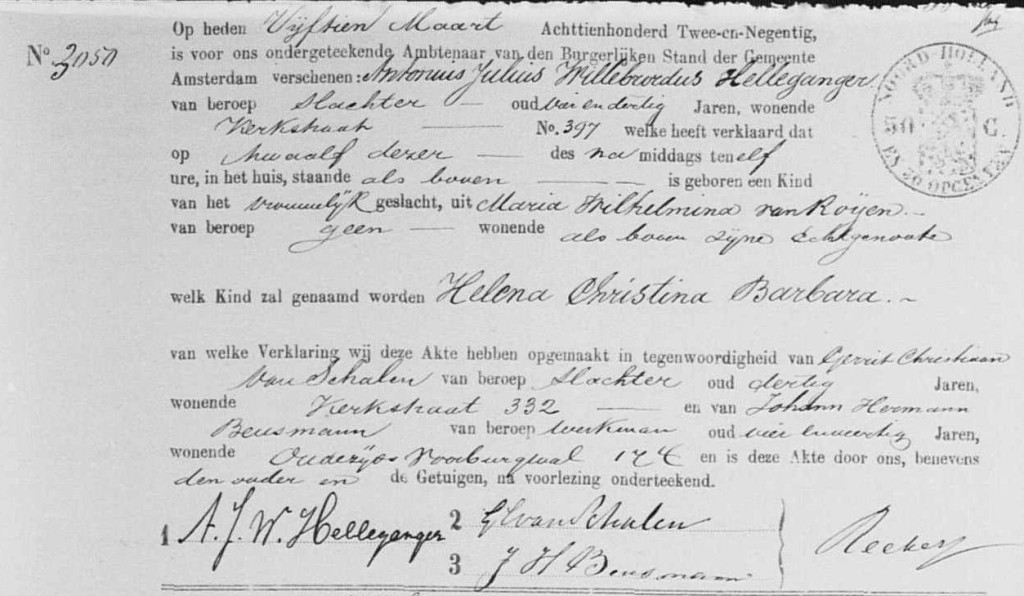 Op heden Vijftien Maart Achttienhonderd Twee-en-Negentig,
No. 3050 is voor ons ondergeteekende Ambtenaar van den Burgerlijken Stand der Gemeente
Amsterdam verschenen: Antonius Julius Willebrordus Helleganger
van beroep Slachter oud vier en dertig Jaren, wonende
Kerkstraat No. 397 welke heeft verklaard dat
op twaalf dezer des na middags ten elf
ure, in het huis, staande als boven is geboren een Kind
van het vrouwelijk geslacht, uit Maria Wilhelmina van Royen
van beroep geen wonende als boven zijne Echtgenoote
welk Kind zal genaamd worden Helena Christina Barbara.
van welke Verklaring wij deze Akte hebben opgemaakt in tegenwoordigheid van Gerrit Christiaan
van Schalen van beroep Slachter oud dertig Jaren,
wonende Kerkstraat 332 en van Johann Hermann
Beusmann van beroep werkman oud vier en veertig Jaren,
wonende Oudezijds Voorburgwal 174 en is deze Akte door ons, benevens
den vader en de Getuigen, na voorlezing onderteekend.
1 A. J. W. Helleganger
2 G C van Schalen
3 J H Beusmann
NOORD-HOLLAND
50 C.
EN 20 OPCENTEN